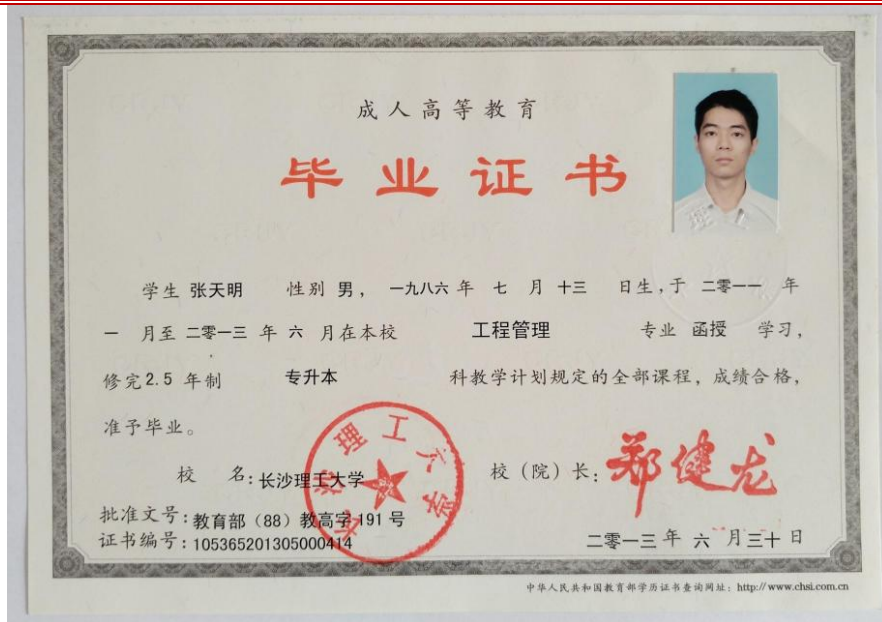 成人高等教育
毕业证书
学生 张天明 性别 男， 一九八六 年 七 月 十三 日生，于 二零一一 年
一 月至 二零一三 年 六 月在本校 工程管理 专业 函授 学习，
修完2.5 年制 专升本 科教学计划规定的全部课程，成绩合格，
准予毕业。
校 名：长沙理工大学 校（院）长：郑健龙
长沙理工大学
批准文号：教育部（88）教高字 191 号
证书编号：105365201305000414 二零一三 年 六 月 三十 日
中华人民共和国教育部学历证书查询网址：http://www.chsi.com.cn